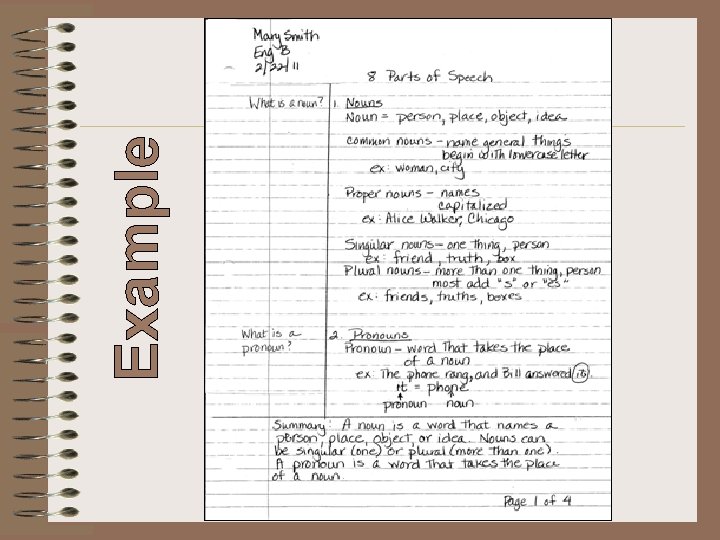 Example
Mary Smith
Eng B
2/22/11
8 Parts of Speech
What is a noun? 1. Nouns
Noun = person, place, object, idea
common nouns - name general things
begin with lowercase letter
ex: woman, city
Proper nouns - names
capitalized
ex: Alice Walker, Chicago
Singular nouns - one thing, person
ex: friend, truth, box
Plural nouns - more than one thing, person
most add "s" or "es"
ex: friends, truths, boxes
What is a 2. Pronouns
pronoun? Pronoun - word that takes the place
of a noun
ex: The phone rang, and Bill answered it.
it = phone
pronoun noun
Summary: A noun is a word that names a
person, place, object, or idea. Nouns can
be singular (one) or plural (more than one).
A pronoun is a word that takes the place
of a noun.
Page 1 of 4